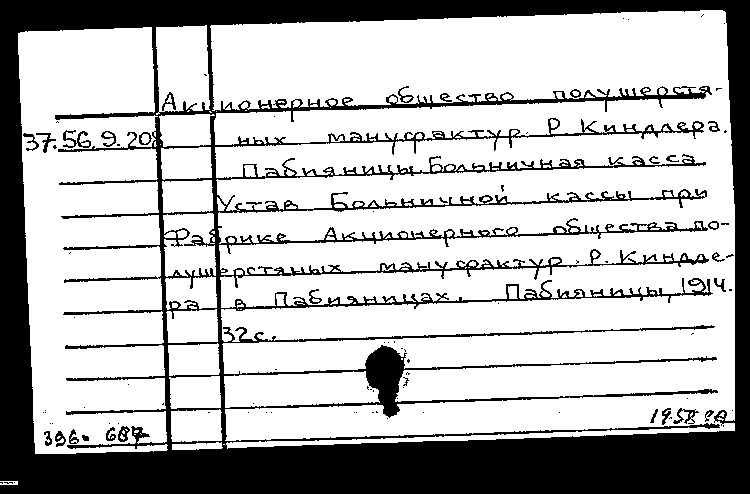 Акционерное общество полушерстя-
37.56.9.208 ных мануфактур Р. Киндлера.
Пабияницы. Больничная касса
Устав Больничной кассы при
Фабрике Акционерного общества по-
лушерстяных мануфактур. Р. Киндле-
ра в Пабияницах. Пабияницы, 1914.
32с.
396. 687